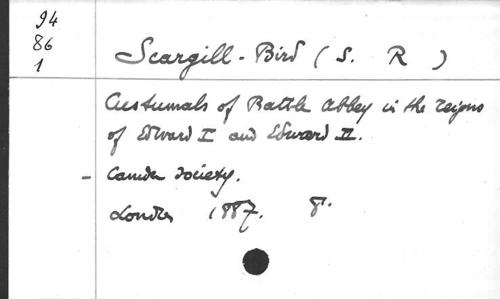 94
86
1
Scargill-Bird (S. R )
Custumals of Battle Abbey in the reigns
of Edward I and Edward II.
- Camden Society.
Londres 1887. 8°.